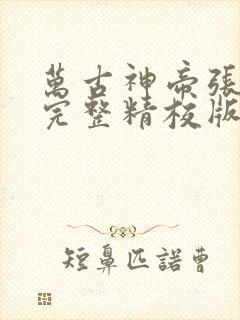 萬古神帝張
完整精校版
短鼻匹諾曹